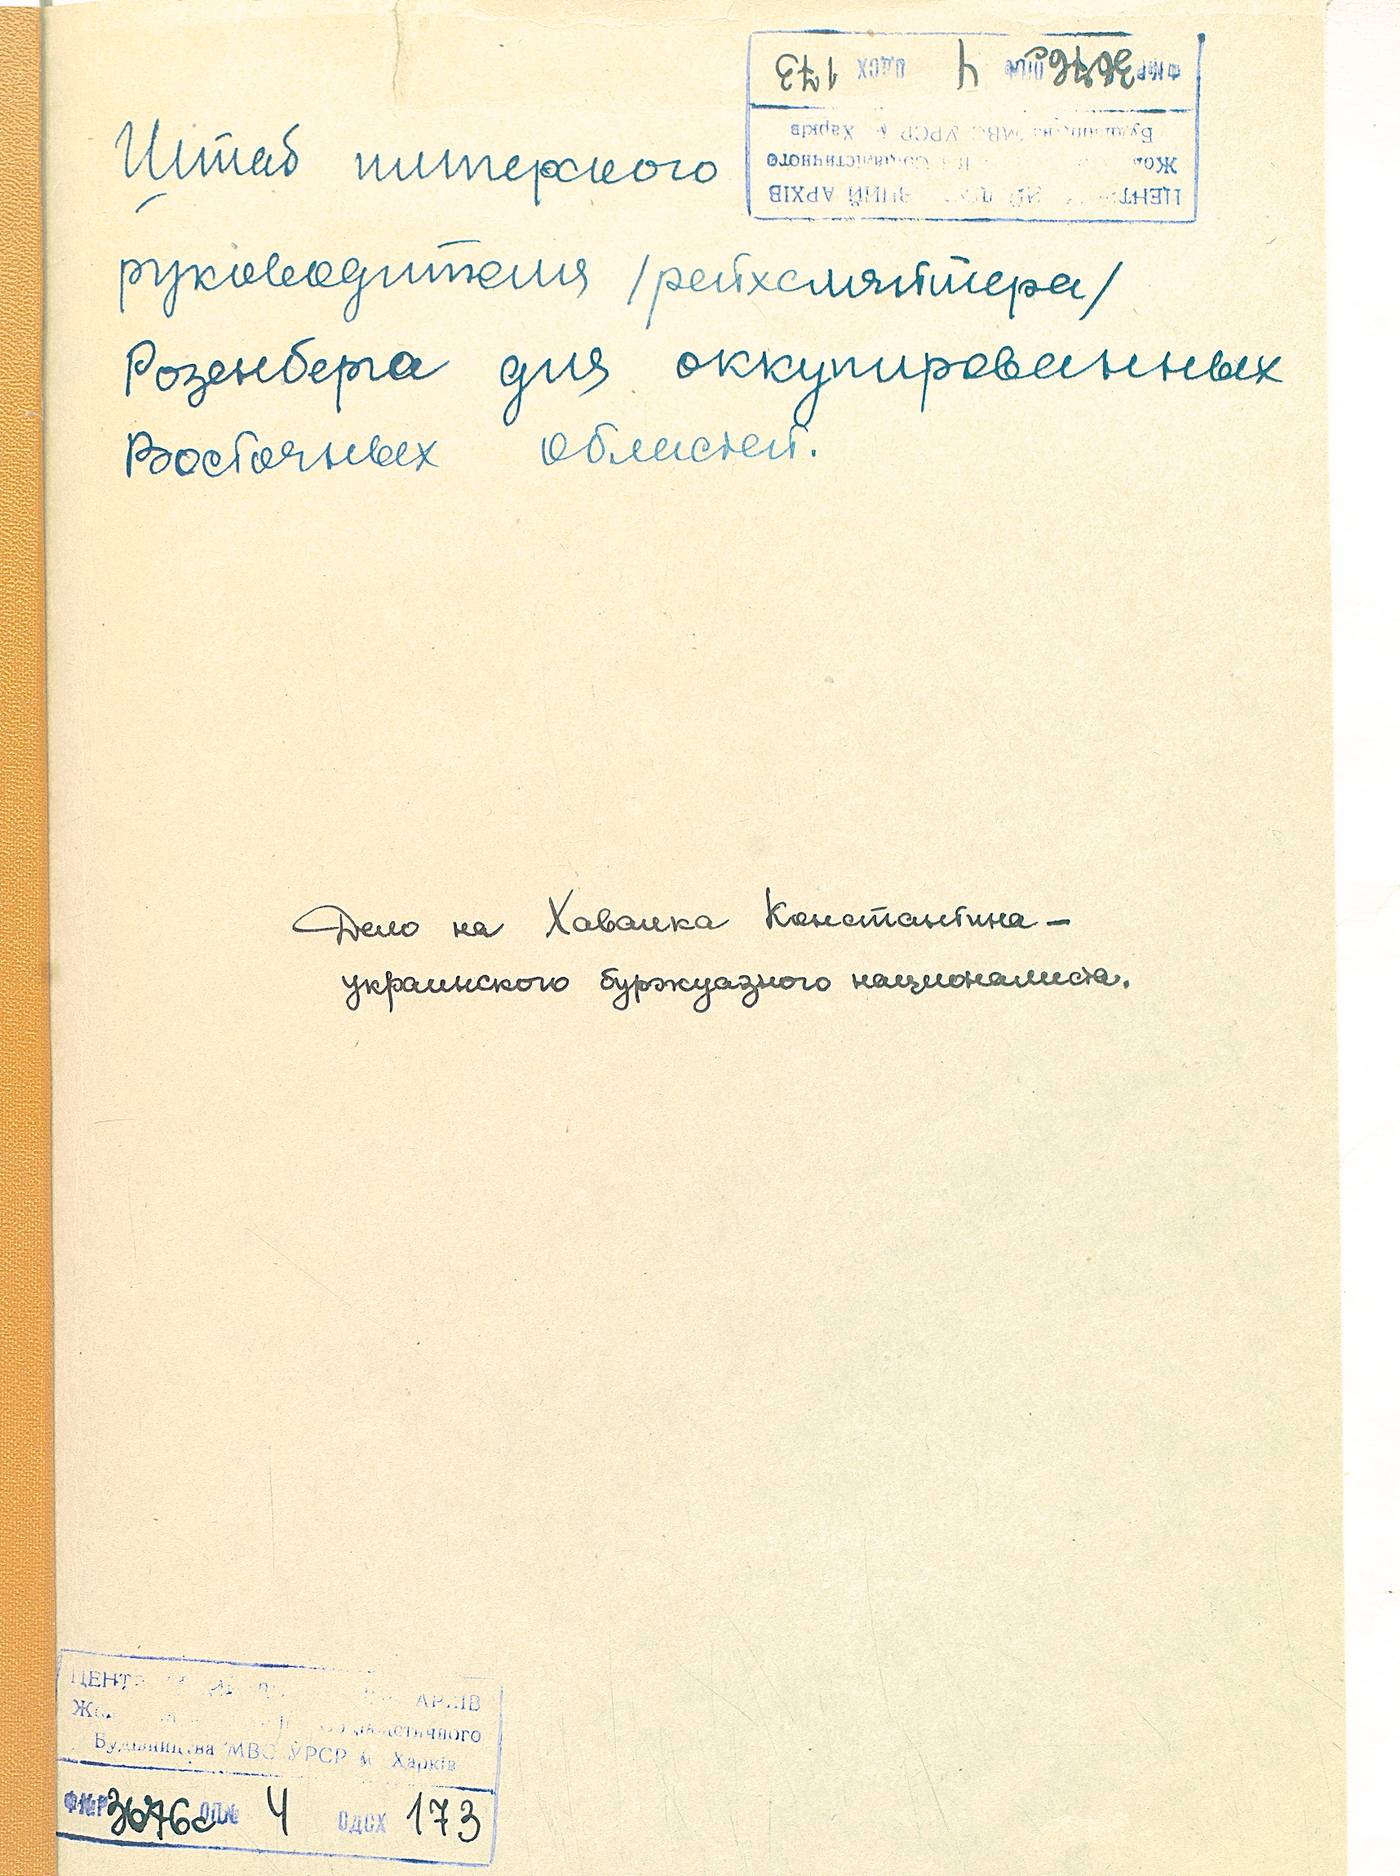 ФNР 3676с ОП№ 4 ОДСХ 173
Будівництва МВС УРСР м. Харків
АРХІВ
Штаб имперского
руководителя /рейхсляйтера/
Розенберга для оккупированных
Восточных областей.
Дело на Хавалка Константина –
украинского буржуазного националиста.
АРХІВ
Соціалістичного
Будівництва МВС УРСР м. Харків
ФNР 3676с ОП№ 4 ОДСХ 173